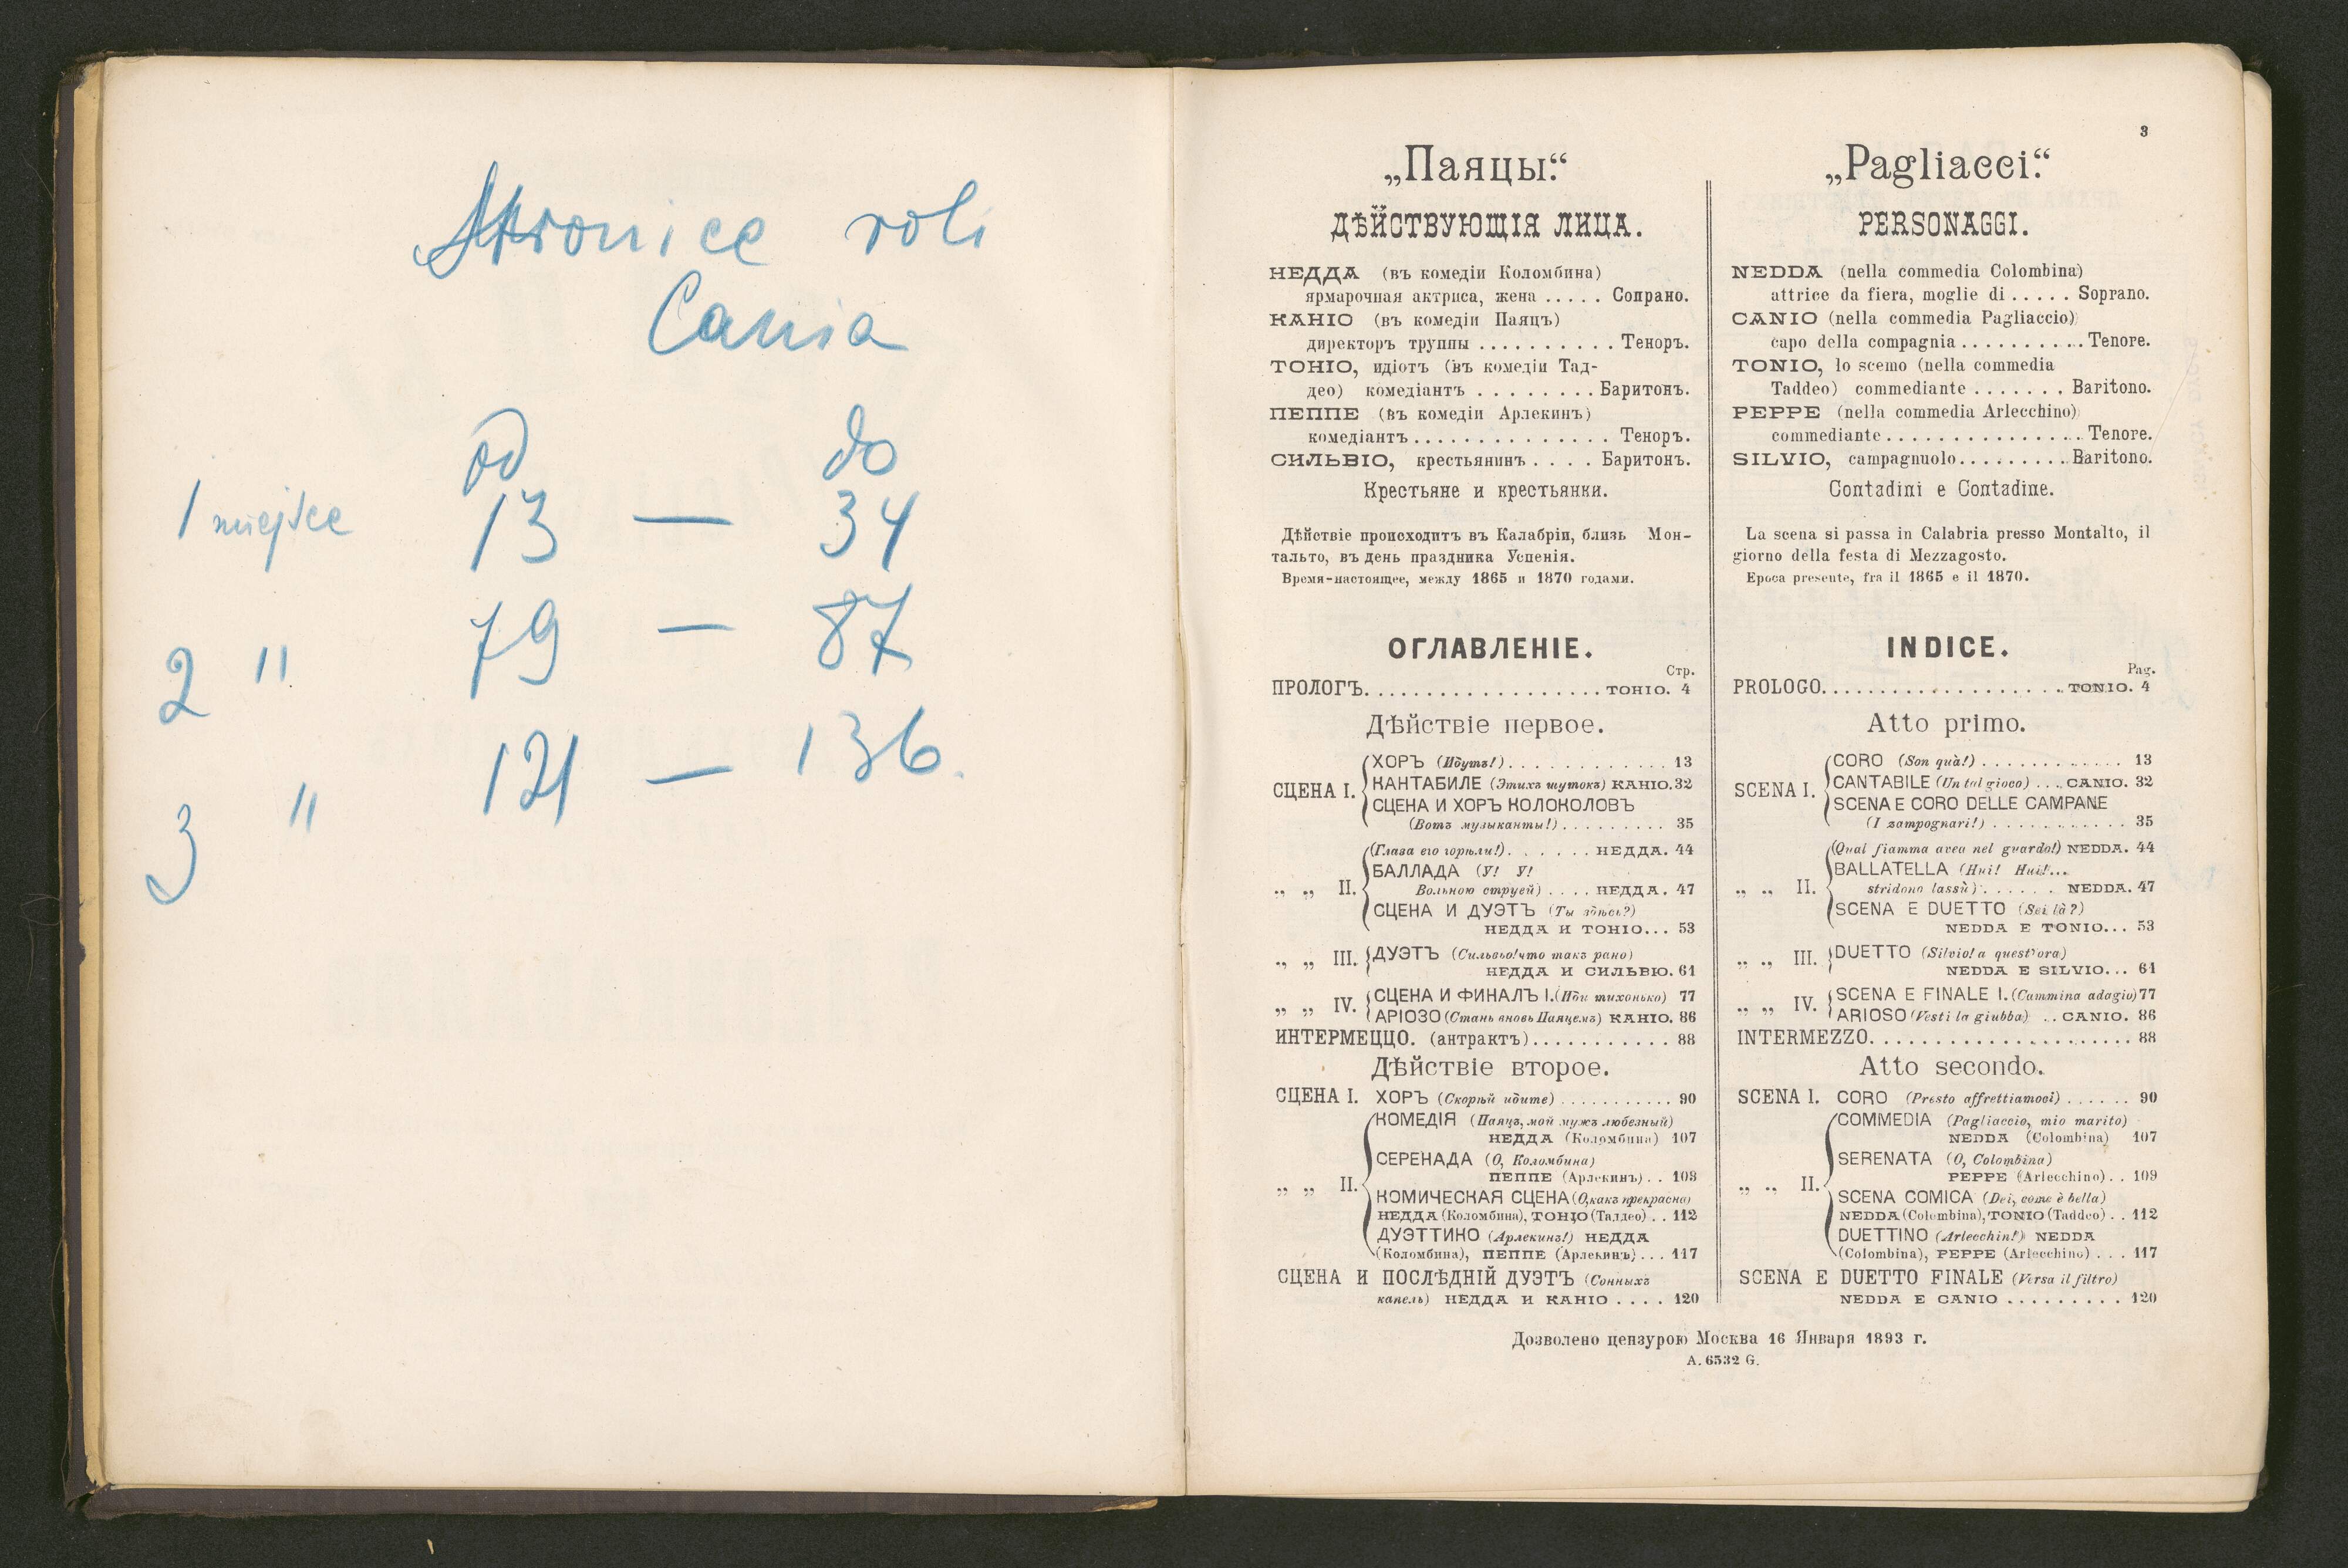 Stronice roli
Cania
od do
1 miejsce 13 — 34
2 " 79 — 87
3 " 121 — 136.
3
„Паяцы.“
ДѢЙСТВУЮЩІЯ ЛИЦА.
НЕДДА (въ комедіи Коломбина)
ярмарочная актриса, жена ..... Сопрано.
КАНІО (въ комедіи Паяцъ)
директоръ труппы .......... Теноръ.
ТОНІО, идіотъ (въ комедіи Тад-
део) комедіантъ ........ Баритонъ.
ПЕППЕ (въ комедіи Арлекинъ)
комедіантъ............... Теноръ.
СИЛЬВІО, крестьянинъ .... Баритонъ.
Крестьяне и крестьянки.
Дѣйствіе происходитъ въ Калабріи, близь Мон-
тальто, въ день праздника Успенія.
Время-настоящее, между 1865 и 1870 годами.
ОГЛАВЛЕНІЕ.
Стр.
ПРОЛОГЪ................... ТОНІО. 4
Дѣйствіе первое.
СЦЕНА I. ХОРЪ (Идутъ!)............. 13
КАНТАБИЛЕ (Этихъ шутокъ) КАНІО. 32
СЦЕНА И ХОРЪ КОЛОКОЛОВЪ
(Вотъ музыканты!)......... 35
„ „ II. (Глаза его горѣли!)....... НЕДДА. 44
БАЛЛАДА (У! У!
Вольною струей).... НЕДДА. 47
СЦЕНА И ДУЭТЪ (Ты здѣсь?)
НЕДДА И ТОНІО... 53
„ „ III. ДУЭТЪ (Сильвьо! что такъ рано)
НЕДДА И СИЛЬВІО. 61
„ „ IV. СЦЕНА И ФИНАЛЪ I. (Иди тихонько) 77
АРІОЗО (Стань вновь Паяцемъ) КАНІО. 86
ИНТЕРМЕЦЦО. (антрактъ)........... 88
Дѣйствіе второе.
СЦЕНА I. ХОРЪ (Скорѣй идите)........... 90
КОМЕДІЯ (Паяцъ, мой мужъ любезный)
НЕДДА (Коломбина) 107
СЕРЕНАДА (О, Коломбина)
ПЕППЕ (Арлекинъ).. 103
„ „ II. КОМИЧЕСКАЯ СЦЕНА (О, какъ прекрасна)
НЕДДА (Коломбина), ТОНІО (Таддео).. 112
ДУЭТТИНО (Арлекинъ!) НЕДДА
(Коломбина), ПЕППЕ (Арлекинъ)... 117
СЦЕНА И ПОСЛѢДНІЙ ДУЭТЪ (Сонныхъ
капель) НЕДДА И КАНІО .... 120
„Pagliacci.“
PERSONAGGI.
NEDDA (nella commedia Colombina)
attrice da fiera, moglie di ..... Soprano.
CANIO (nella commedia Pagliaccio)
capo della compagnia ........... Tenore.
TONIO, lo scemo (nella commedia
Taddeo) commediante ....... Baritono.
PEPPE (nella commedia Arlecchino)
commediante................ Tenore.
SILVIO, campagnuolo.......... Baritono.
Contadini e Contadine.
La scena si passa in Calabria presso Montalto, il
giorno della festa di Mezzagosto.
Epoca presente, fra il 1865 e il 1870.
INDICE.
Pag.
PROLOGO..................... TONIO. 4
Atto primo.
SCENA I. CORO (Son quà!)............ 13
CANTABILE (Un tal gioco)... CANIO. 32
SCENA E CORO DELLE CAMPANE
(I zampognari!)............ 35
„ „ II. (Qual fiamma avea nel guardo!) NEDDA. 44
BALLATELLA (Hui! Hui!...
stridono lassù)...... NEDDA. 47
SCENA E DUETTO (Sei là?)
NEDDA E TONIO... 53
„ „ III. DUETTO (Silvio! a quest'ora)
NEDDA E SILVIO... 61
„ „ IV. SCENA E FINALE I. (Cammina adagio) 77
ARIOSO (Vesti la giubba) .. CANIO. 86
INTERMEZZO...................... 88
Atto secondo.
SCENA I. CORO (Presto affrettiamoci)...... 90
COMMEDIA (Pagliaccio, mio marito)
NEDDA (Colombina) 107
SERENATA (O, Colombina)
PEPPE (Arlecchino).. 109
„ „ II. SCENA COMICA (Dei, come è bella)
NEDDA (Colombina), TONIO (Taddeo).. 112
DUETTINO (Arlecchin!) NEDDA
(Colombina), PEPPE (Arlecchino)... 117
SCENA E DUETTO FINALE (Versa il filtro)
NEDDA E CANIO ......... 120
Дозволено цензурою Москва 16 Января 1893 г.
A. 6532 G.